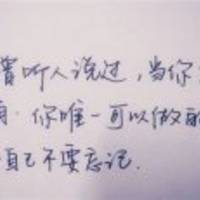 曾听人说过,当你
有,你唯一可以做的
自己不要忘记.